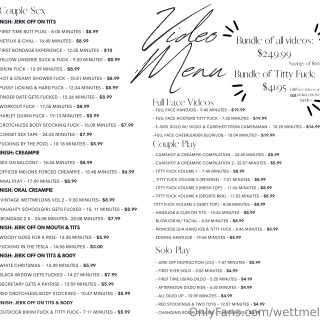 Couple Sex
INISH: JERK OFF ON TITS
FIRST TIME BUTT PLUG - 8:08 MINUTES - $8.99
NETFLIX & CHILL - 16:40 MINUTES - $9.99
FIRST BONDAGE EXPERIENCE - 12:35 MINUTES - $10
YELLOW LINGERIE SUCK & FUCK - 9:20 MINUTES - $8.99
BIKINI FUCK - 13:09 MINUTES - $8.99
HOT & STEAMY SHOWER FUCK - 10:51 MINUTES - $8.99
PUSSY LICKING & HARD FUCK - 12:34 MINUTES - $8.99
TINDER DATE GETS FUCKED - 12:26 MINUTES - $8.99
WORKOUT FUCK - 17:05 MINUTES - $8.99
HARLEY QUINN FUCK - 19:13 MINUTES - $9.99
CROTCHLESS BODY STOCKING FUCK - 16:00 MINUTES - $7.99
CORSET SEX TAPE - 24:25 MINUTES - $7.99
FUCKING BY THE POOL - 10:18 MINUTES - $3.99
INISH: CREAMPIE
SEX ON BALCONY - 15:24 MINUTES - $8.99
OFFICER MELONS FORCED CREAMPIE - 15:48 MINUTES - $6.99
ANAL PLAY - 17:59 MINUTES - $8.99
INISH: ORAL CREAMPIE
VINTAGE WETTMELONS VOL 2 - 9:20 MINUTES - $8.99
NAUGHTY SCHOOLGIRL GETS FUCKED - 15: 11 MINUTES - $8.99
BONDAGE 2.0 - 25:08 MINUTES - $7.99
INISH: JERK OFF ON MOUTH & TITS
WOODY GOES FOR A RIDE - 14:38 MINUTES - $5.99
FUCKING IN THE TESLA - 14:06 MINUTES - $3.00
INISH: JERK OFF ON TITS & BODY
WHITE CHRISTMAS - 13:49 MINUTES - $5.99
BLACK WIDOW GETS FUCKED - 14:27 MINUTES - $7.99
SECRETARY GETS A PAYRISE - 13:59 MINUTES - $5.99
RED CROTCHLESS BODY STOCKING - 10:47 MINUTES - $5.99
INISH: JERK OFF ON TITS & BODY
OUTDOOR BIKINI FUCK & TITTY FUCK - 7:11 MINUTES - $5.99
Video
Menu
Bundle of all videos:
$249.99
Bundle of Titty Fuck:
$41.95
Full Face Videos
- FULL FACE HANDJOB - 9:40 MINUTES - $19.99
- FULL FACE HOOTERS TITTY FUCK - 7:30 MINUTES - $19.99
- FULL FACE CHEERLEADER BLOWJOB - 18:04 MINUTES - $19.99
Couple Play
- CAMESHOT & CREAMPIE COMPILATION
- TITTY FUCK VOLUME 1 - 7:48 MINUTES - $8.99
- TITTY FUCK VOLUME 2 (REVERSE) - 7:21 MINUTES - $8.99
- TITTY FUCK VOLUME 3 (MESH TOP) - 11:26 MINUTES - $8.99
- TITTY FUCK VOLUME 4 (SPORTS BRA) - 11:35 MINUTES - $8.99
- HANDJOB & CUM ON TITS - 10:42 MINUTES - $8.99
- PRINCESS LEIA HANDJOB & TITTY FUCK - 8:46 MINUTES - $5.99
- EDGING HANDJOB - 19:54 MINUTES - $8.99
Solo Play
- JERK OFF INSTRUCTION (JOI) - 7:47 MINUTES - $5.99
- FIRST EVER SOLO - 3:08 MINUTES - $4.99
- FIRST TIME USING DILDO - 5:25 MINUTES - $4.99
- AFTERNOON DILDO RIDE - 6:30 MINUTES - $4.99
- ALL OILED UP - 10:08 MINUTES - $4.99
- RED STOCKINGS & TWO TOYS - 12:07 MINUTES - $4.99
OnlyFans.com/wettmel